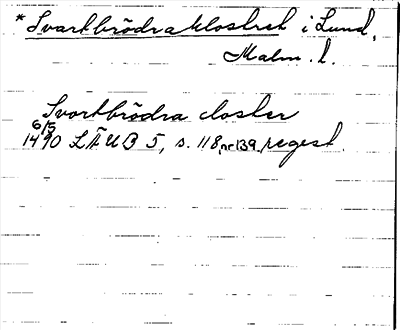 * Svartbrödraklostret i Lund,
Malm. l.
Svortbrödra closter
6/5
1490 LÄUB 5, s. 118, nr 139, regest.